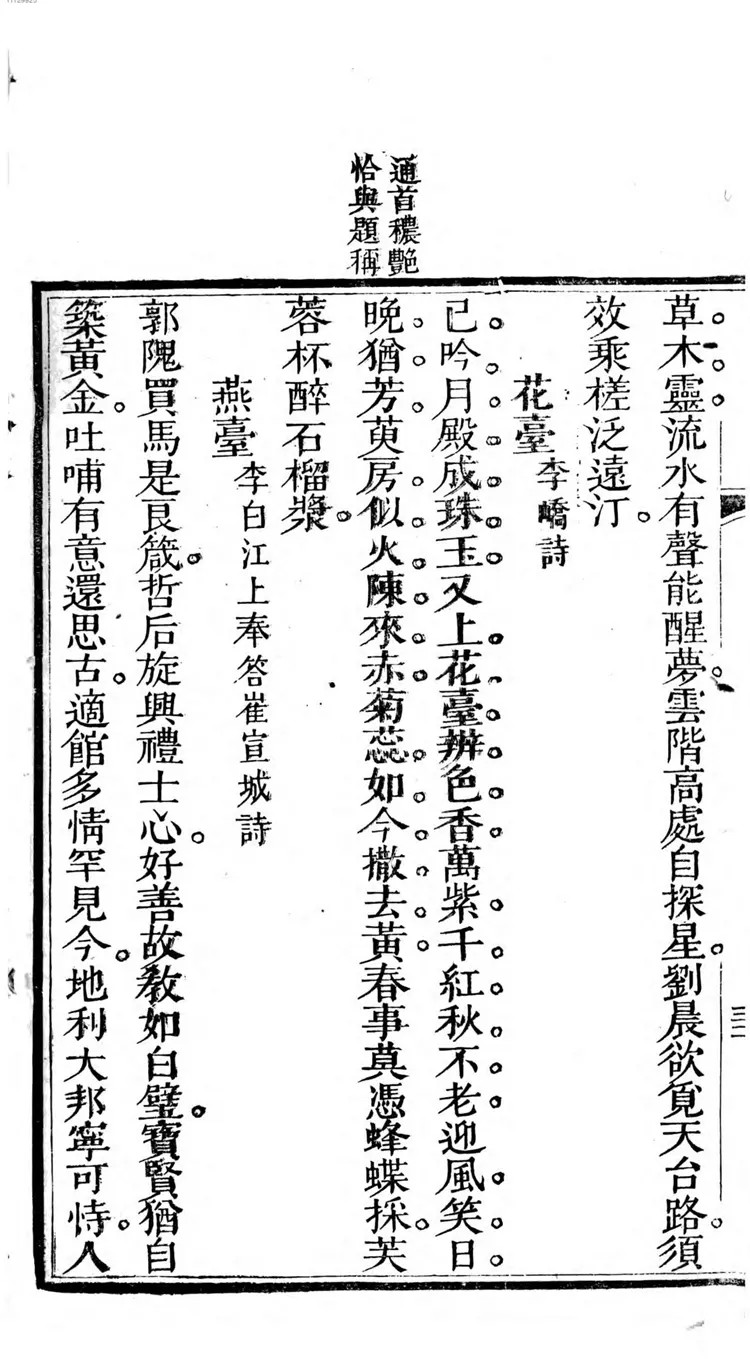 通首穠艷
恰與題稱
草木靈流水有聲能醒夢雲階高處自探星劉晨欲覓天台路須
效乘槎泛遠汀
花臺李嶠詩
已吟月殿成珠玉又上花臺辨色香萬紫千紅秋不老迎風笑日
晚猶芳萸房似火陳來赤菊蕊如今撒去黃春事莫憑蜂蝶採芙
蓉杯醉石榴漿
燕臺李白江上奉答崔宣城詩
郭隗買馬是良箴哲后旋興禮士心好善故教如白璧寶賢猶自
築黃金吐哺有意還思古適館多情罕見今地利大邦寧可恃人
三二